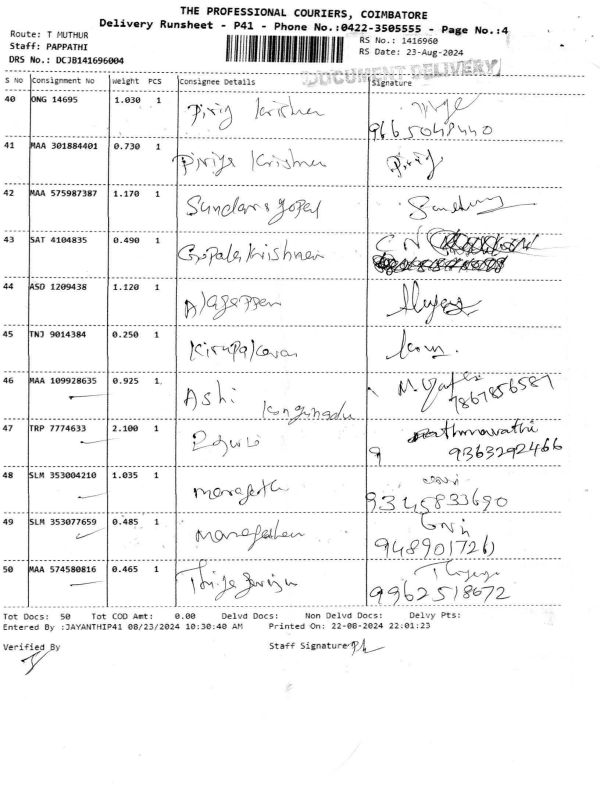 THE PROFESSIONAL COURIERS, COIMBATORE
Delivery Runsheet - P41 - Phone No.:0422-3505555 - Page No.:4
Route: T MUTHUR
Staff: PAPPATHI
DRS No.: DCJB141696004
RS No.: 1416960
RS Date: 23-Aug-2024
DOCUMENT DELIVERY
S No Consignment No Weight PCS Consignee Details Signature
40 ONG 14695 1.030 1 Krishnan
9665048440
41 MAA 301884401 0.730 1 Priya Krishnan Priy
42 MAA 575987387 1.170 1 Sundara gopal
43 SAT 4104835 0.490 1 Gopala Krishnan CN
44 ASD 1209438 1.120 1 Alagappan
45 TNJ 9014384 0.250 1 Kirupakaran
46 MAA 109928635 0.925 1 Ashi
7867856587
47 TRP 7774633 2.100 1
9363292466
48 SLM 353004210 1.035 1
9345833690
49 SLM 353077659 0.485 1
9489017261
50 MAA 574580816 0.465 1
9962518672
Tot Docs: 50 Tot COD Amt: 0.00 Delvd Docs: Non Delvd Docs: Delvy Pts:
Entered By :JAYANTHIP41 08/23/2024 10:30:40 AM Printed On: 22-08-2024 22:01:23
Verified By Staff Signature